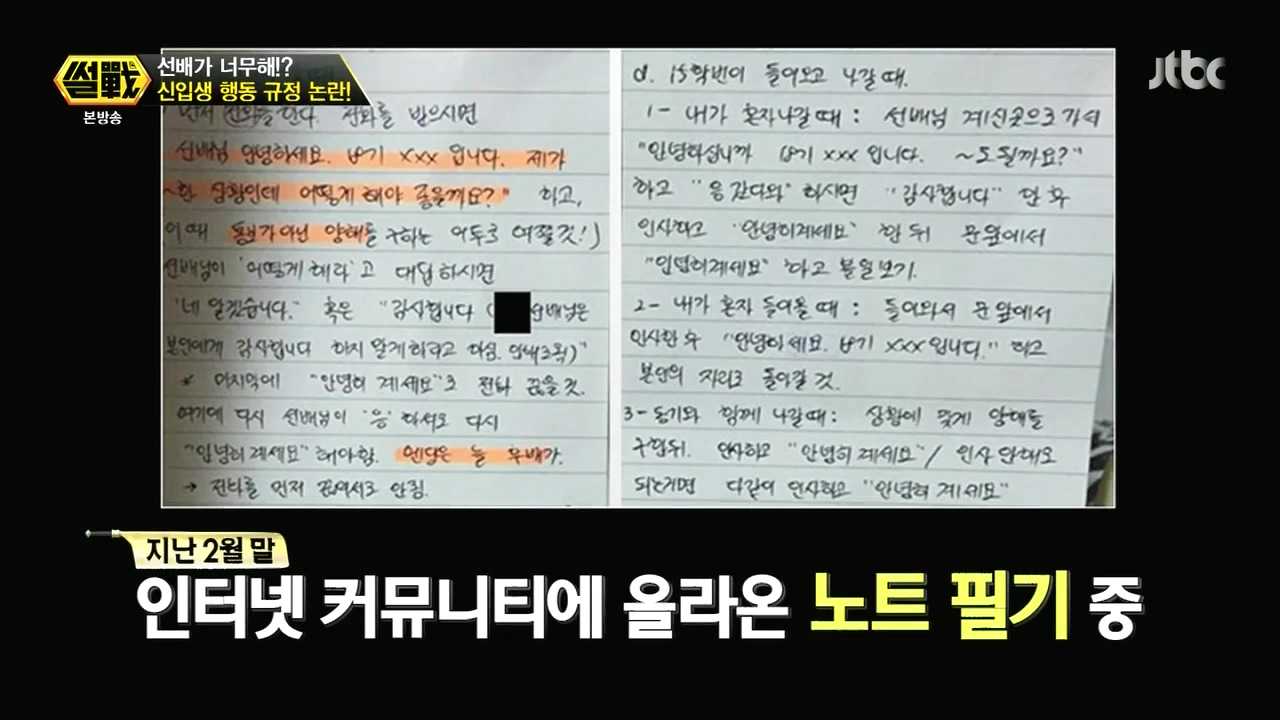 썰戰
본방송
선배가 너무해!?
신입생 행동 규정 논란!
jtbc
먼저 전화를 한다 전화를 받으시면
선배님 안녕하세요. 8기 xxx 입니다. 제가
~한 상황인데 어떻게 해야 좋을까요?" 하고,
이때 통보가 아닌 양해를 구하는 어투로 여쭐것!)
선배님이 '어떻게 해라'고 대답하시면
"네 알겠습니다." 혹은 "감사합니다 ( 선배님은
본인에게 감사합니다 하지 말게하라고 하심.
* 마지막에 "안녕히 계세요"로 전화 끊을것.
여기에 다시 선배님이 '응' 하셔도 다시
"안녕히계세요" 해야함. 엔딩은 늘 후배가.
→ 전화를 먼저 끊어서도 안됨.
d. 15학번이 들어오고 나갈 때.
1- 내가 혼자나갈때 : 선배님 계신곳으로 가서
"안녕하십니까 8기 xxx입니다. ~도 될까요?"
하고 "응 갔다와" 하시면 "감사합니다" 한 후
인사하고 "안녕히계세요" 한 뒤 문앞에서
"안녕히계세요" 하고 볼일보기.
2- 내가 혼자 들어올 때 : 들어와서 문앞에서
인사한 후 "안녕하세요. 8기 xxx입니다." 하고
본인의 자리로 돌아갈 것.
3- 동기와 함께 나갈때 : 상황에 맞게 양해를
구한뒤. 인사하고 "안녕히 계세요" / 인사 안해도
되는거면 다같이 인사하고 "안녕히 계세요"
지난 2월 말
인터넷 커뮤니티에 올라온 노트 필기 중